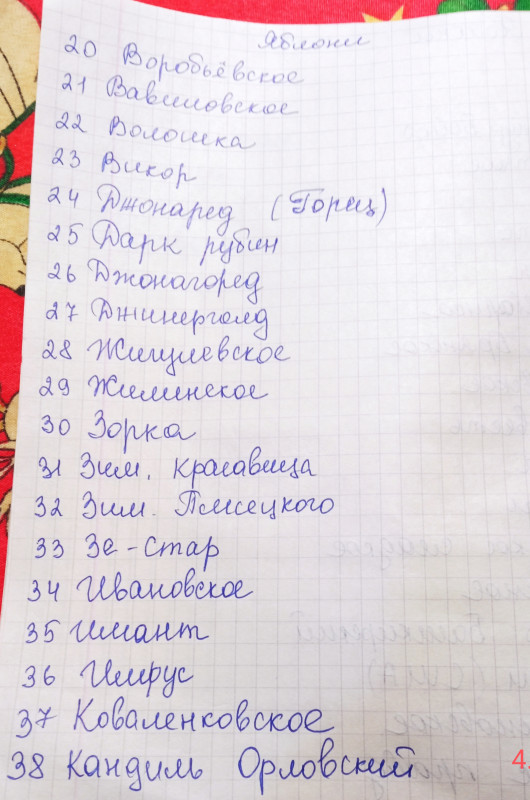 Яблони
20 Воробьёвское
21 Вавиловское
22 Волошка
23 Викор
24 Джонаред (Горец)
25 Дарк рубин
26 Джонагоред
27 Джинерголд
28 Жигулевское
29 Жилинское
30 Зорка
31 Зим. красавица
32 Зим. Плисецкого
33 Зе-Стар
34 Ивановское
35 Имант
36 Имрус
37 Коваленковское
38 Кандиль Орловский
4.